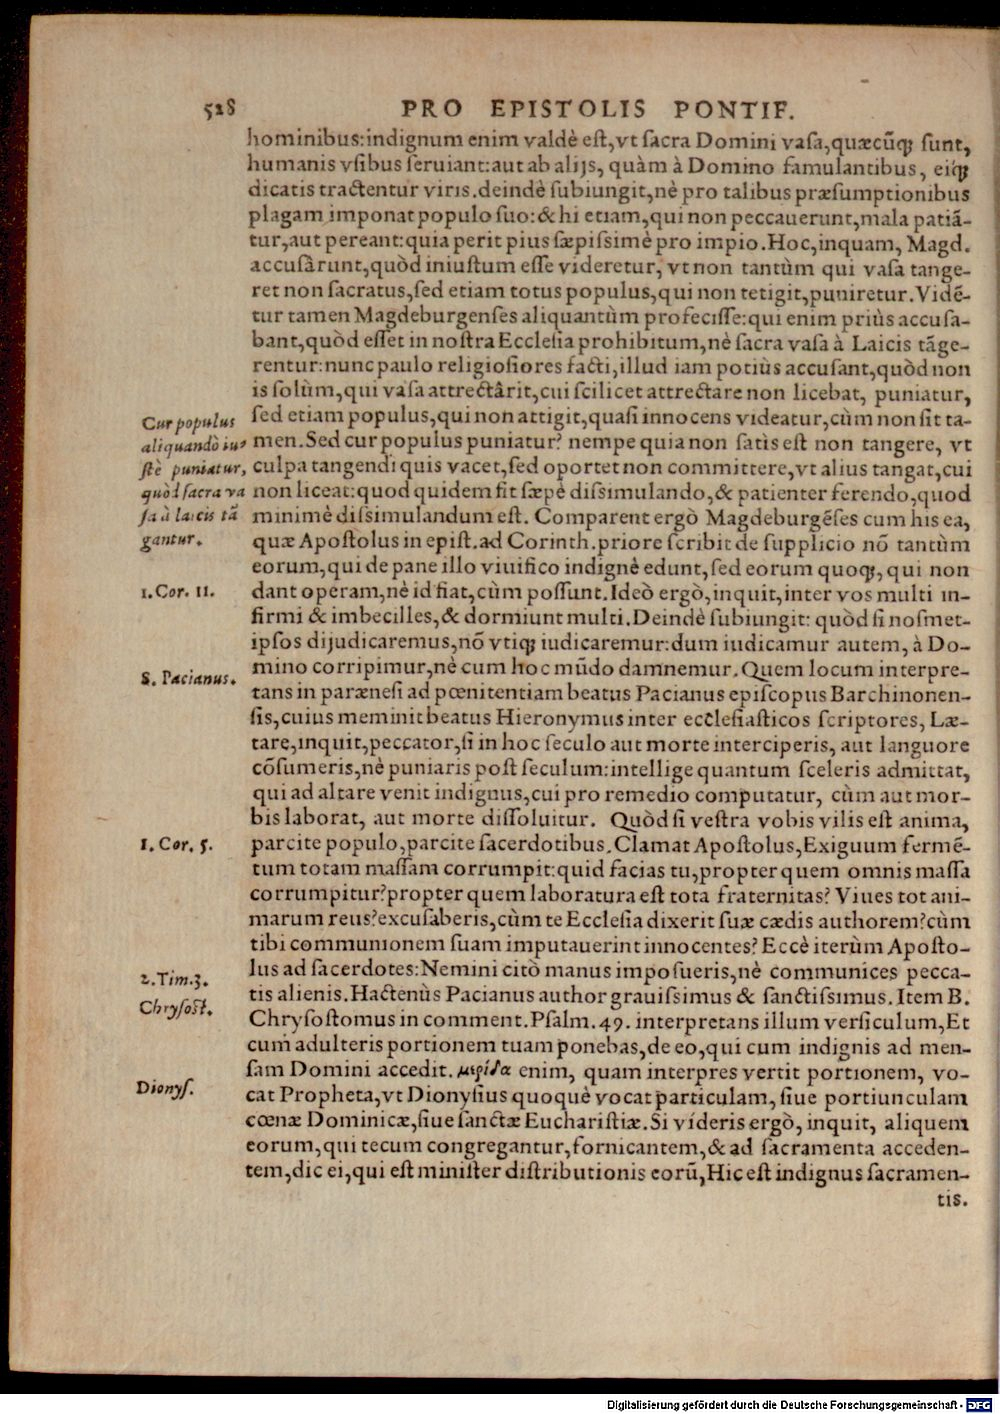 528 PRO EPISTOLIS PONTIF.
hominibus:indignum enim valdè eſt,vt ſacra Domini vaſa,quæcũq; ſunt,
humanis vſibus ſeruiant:aut ab alijs, quàm à Domino famulantibus, eiq́;
dicatis tractentur viris.deindè ſubiungit,nè pro talibus præſumptionibus
plagam imponat populo ſuo:& hi etiam,qui non peccauerunt,mala patiã-
tur,aut pereant:quia perit pius ſæpiſſimè pro impio.Hoc,inquam, Magd.
accuſârunt,quòd iniuſtum eſſe videretur, vt non tantùm qui vaſa tange-
ret non ſacratus,ſed etiam totus populus,qui non tetigit,puniretur.Vidẽ-
tur tamen Magdeburgenſes aliquantùm profeciſſe:qui enim priùs accuſa-
bant,quòd eſſet in noſtra Eccleſia prohibitum,nè ſacra vaſa à Laicis tãge-
rentur:nunc paulo religioſiores facti,illud iam potiùs accuſant,quòd non
is ſolùm,qui vaſa attrectârit,cui ſcilicet attrectare non licebat, puniatur,
ſed etiam populus,qui non attigit,quaſi innocens videatur,cùm non ſit ta-
men.Sed cur populus puniatur? nempe quia non ſatìs eſt non tangere, vt
culpa tangendi quis vacet,ſed oportet non committere,vt alius tangat,cui
non liceat:quod quidem fit ſæpè diſſimulando,& patienter ferendo,quod
minimè diſſimulandum eſt. Comparent ergò Magdeburgẽſes cum his ea,
quæ Apoſtolus in epiſt.ad Corinth.priore ſcribit de ſupplicio nõ tantùm
eorum,qui de pane illo viuifico indignè edunt,ſed eorum quoq;, qui non
dant operam,nè id fiat,cùm poſſunt.Ideò ergò,inquit,inter vos multi in-
firmi & imbecilles,& dormiunt multi.Deindè ſubiungit: quòd ſi noſmet-
ipſos dijudicaremus,nõ vtiq; iudicaremur:dum iudicamur autem, à Do-
mino corripimur,nè cum hoc mũdo damnemur.Quem locum interpre-
tans in parænesi ad pœnitentiam beatus Pacianus epiſcopus Barchinonen-
ſis,cuius meminit beatus Hieronymus inter eccleſiaſticos ſcriptores, Læ-
tare,inquit,peccator,ſi in hoc ſeculo aut morte interciperis, aut languore
cõſumeris,nè puniaris poſt ſeculum:intellige quantum ſceleris admittat,
qui ad altare venit indignus,cui pro remedio computatur, cùm aut mor-
bis laborat, aut morte diſſoluitur. Quòd ſi veſtra vobis vilis eſt anima,
parcite populo,parcite ſacerdotibus.Clamat Apoſtolus,Exiguum fermẽ-
tum totam maſſam corrumpit:quid facias tu,propter quem omnis maſſa
corrumpitur?propter quem laboratura eſt tota fraternitas? Viues tot ani-
marum reus?excuſaberis,cùm te Eccleſia dixerit ſuæ cædis authorem?cùm
tibi communionem ſuam imputauerint innocentes? Eccè iterùm Apoſto-
lus ad ſacerdotes:Nemini citò manus impoſueris,nè communices pecca-
tis alienis.Hactenùs Pacianus author grauiſſimus & ſanctiſſimus.Item B.
Chryſoſtomus in comment.Pſalm.49. interpretans illum verſiculum,Et
cum adulteris portionem tuam ponebas,de eo,qui cum indignis ad men-
ſam Domini accedit.μερίδα enim, quam interpres vertit portionem, vo-
cat Propheta,vt Dionyſius quoquè vocat particulam, ſiue portiunculam
cœnæ Dominicæ,ſiue ſanctæ Euchariſtiæ.Si videris ergò, inquit, aliquem
eorum,qui tecum congregantur,fornicantem,& ad ſacramenta acceden-
tem,dic ei,qui eſt miniſter diſtributionis eorũ,Hic eſt indignus ſacramen-
tis.
Cur populus
aliquandò iu-
ſtè puniatur,
quòd ſacra va
ſa à laicis tã
gantur.
1.Cor. 11.
S. Pacianus.
1. Cor. 5.
2.Tim.3.
Chryſoſt.
Dionyſ.
Digitalisierung gefördert durch die Deutsche Forschungsgemeinschaft - DFG